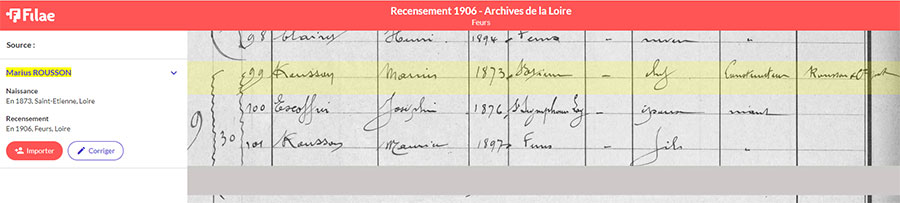 Filae
Recensement 1906 - Archives de la Loire
Feurs
Source :
Marius ROUSSON
Naissance
En 1873, Saint-Etienne, Loire
Recensement
En 1906, Feurs, Loire
Importer
Corriger
98 Henri 1894 Feurs - neveu "
99 Rousson Marius 1873 - chef Constructeur Rousson &
100 Escoffier Joséphine 1876 St Symphorien - épouse néant
9 30 101 Rousson Maurice 1897 Feurs - fils -